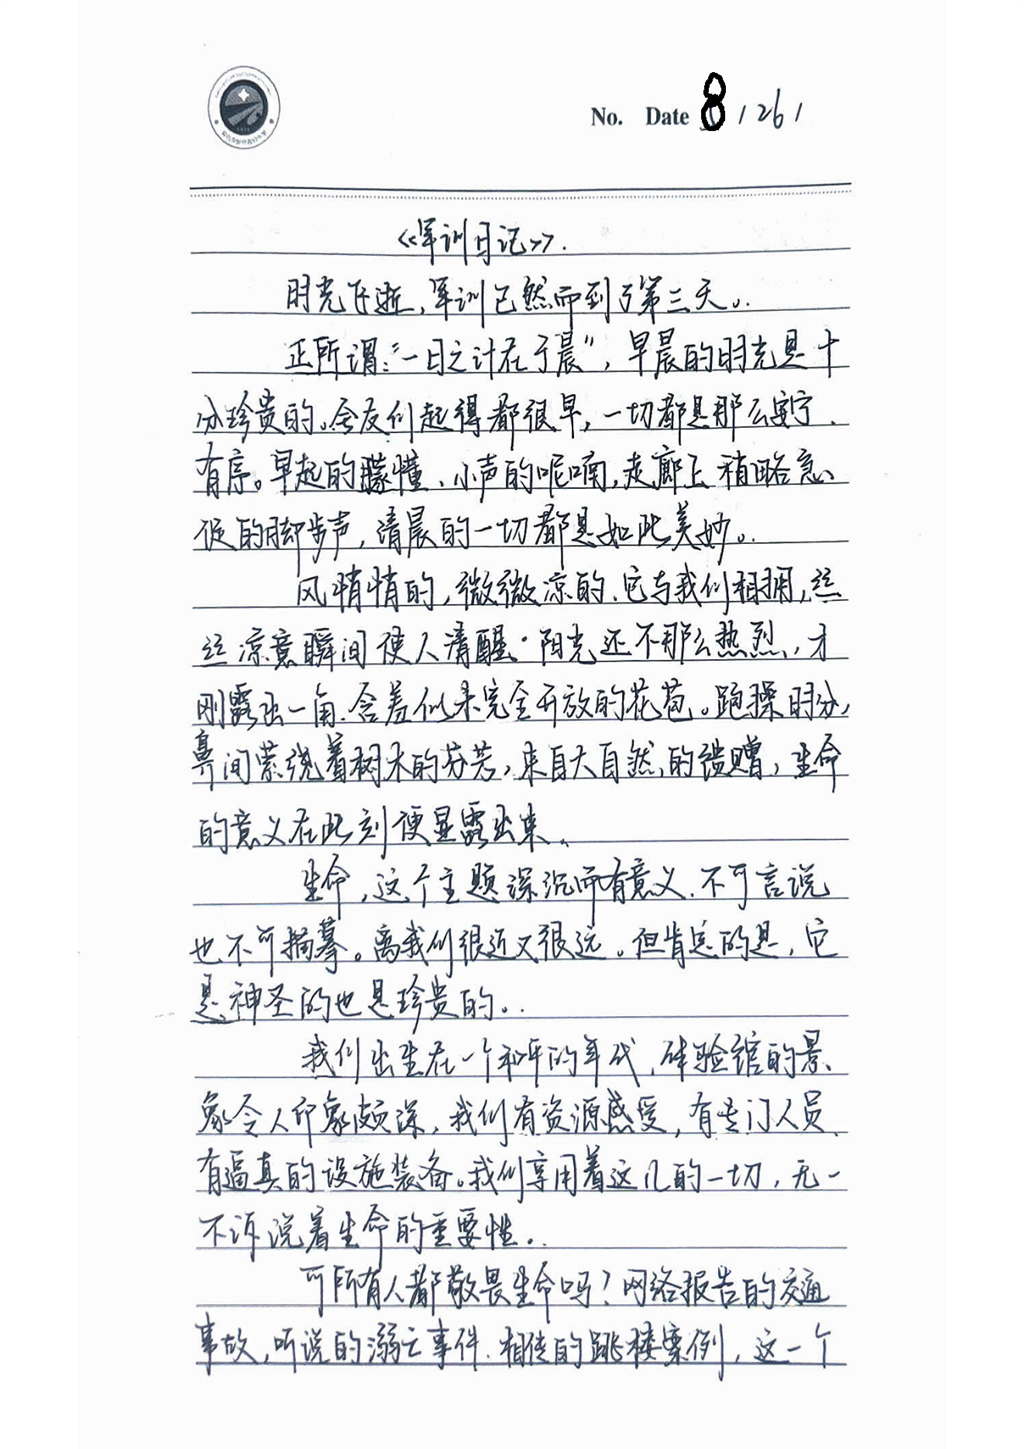 No. Date 8 / 26 /
《军训日记》.
时光飞逝，军训已然而到了第三天。
正所谓："一日之计在于晨"，早晨的时光是十
分珍贵的。舍友们起得都很早，一切都是那么安宁、
有序。早起的朦憧、小声的呢喃，走廊上稍略急
促的脚步声，清晨的一切都是如此美妙。
风悄悄的，微微凉的、它与我们相拥，丝
丝凉意瞬间使人清醒．阳光还不那么热烈，才
刚露出一角、含羞似未完全开放的花苞。跑操时分，
鼻间萦绕着树木的芬芳，来自大自然的馈赠，生命
的意义在此刻便显露出来。
生命，这个主题深沉而有意义、不可言说
也不可描摹。离我们很近又很远。但肯定的是，它
是神圣的也是珍贵的。
我们出生在一个和平的年代，体验馆的景
象令人印象颇深，我们有资源感受，有专门人员
有逼真的设施装备。我们享用着这儿的一切，无一
不诉说着生命的重要性。
可所有人都敬畏生命吗？网络报告的交通
事故，听说的溺亡事件、相传的跳楼案例，这一个